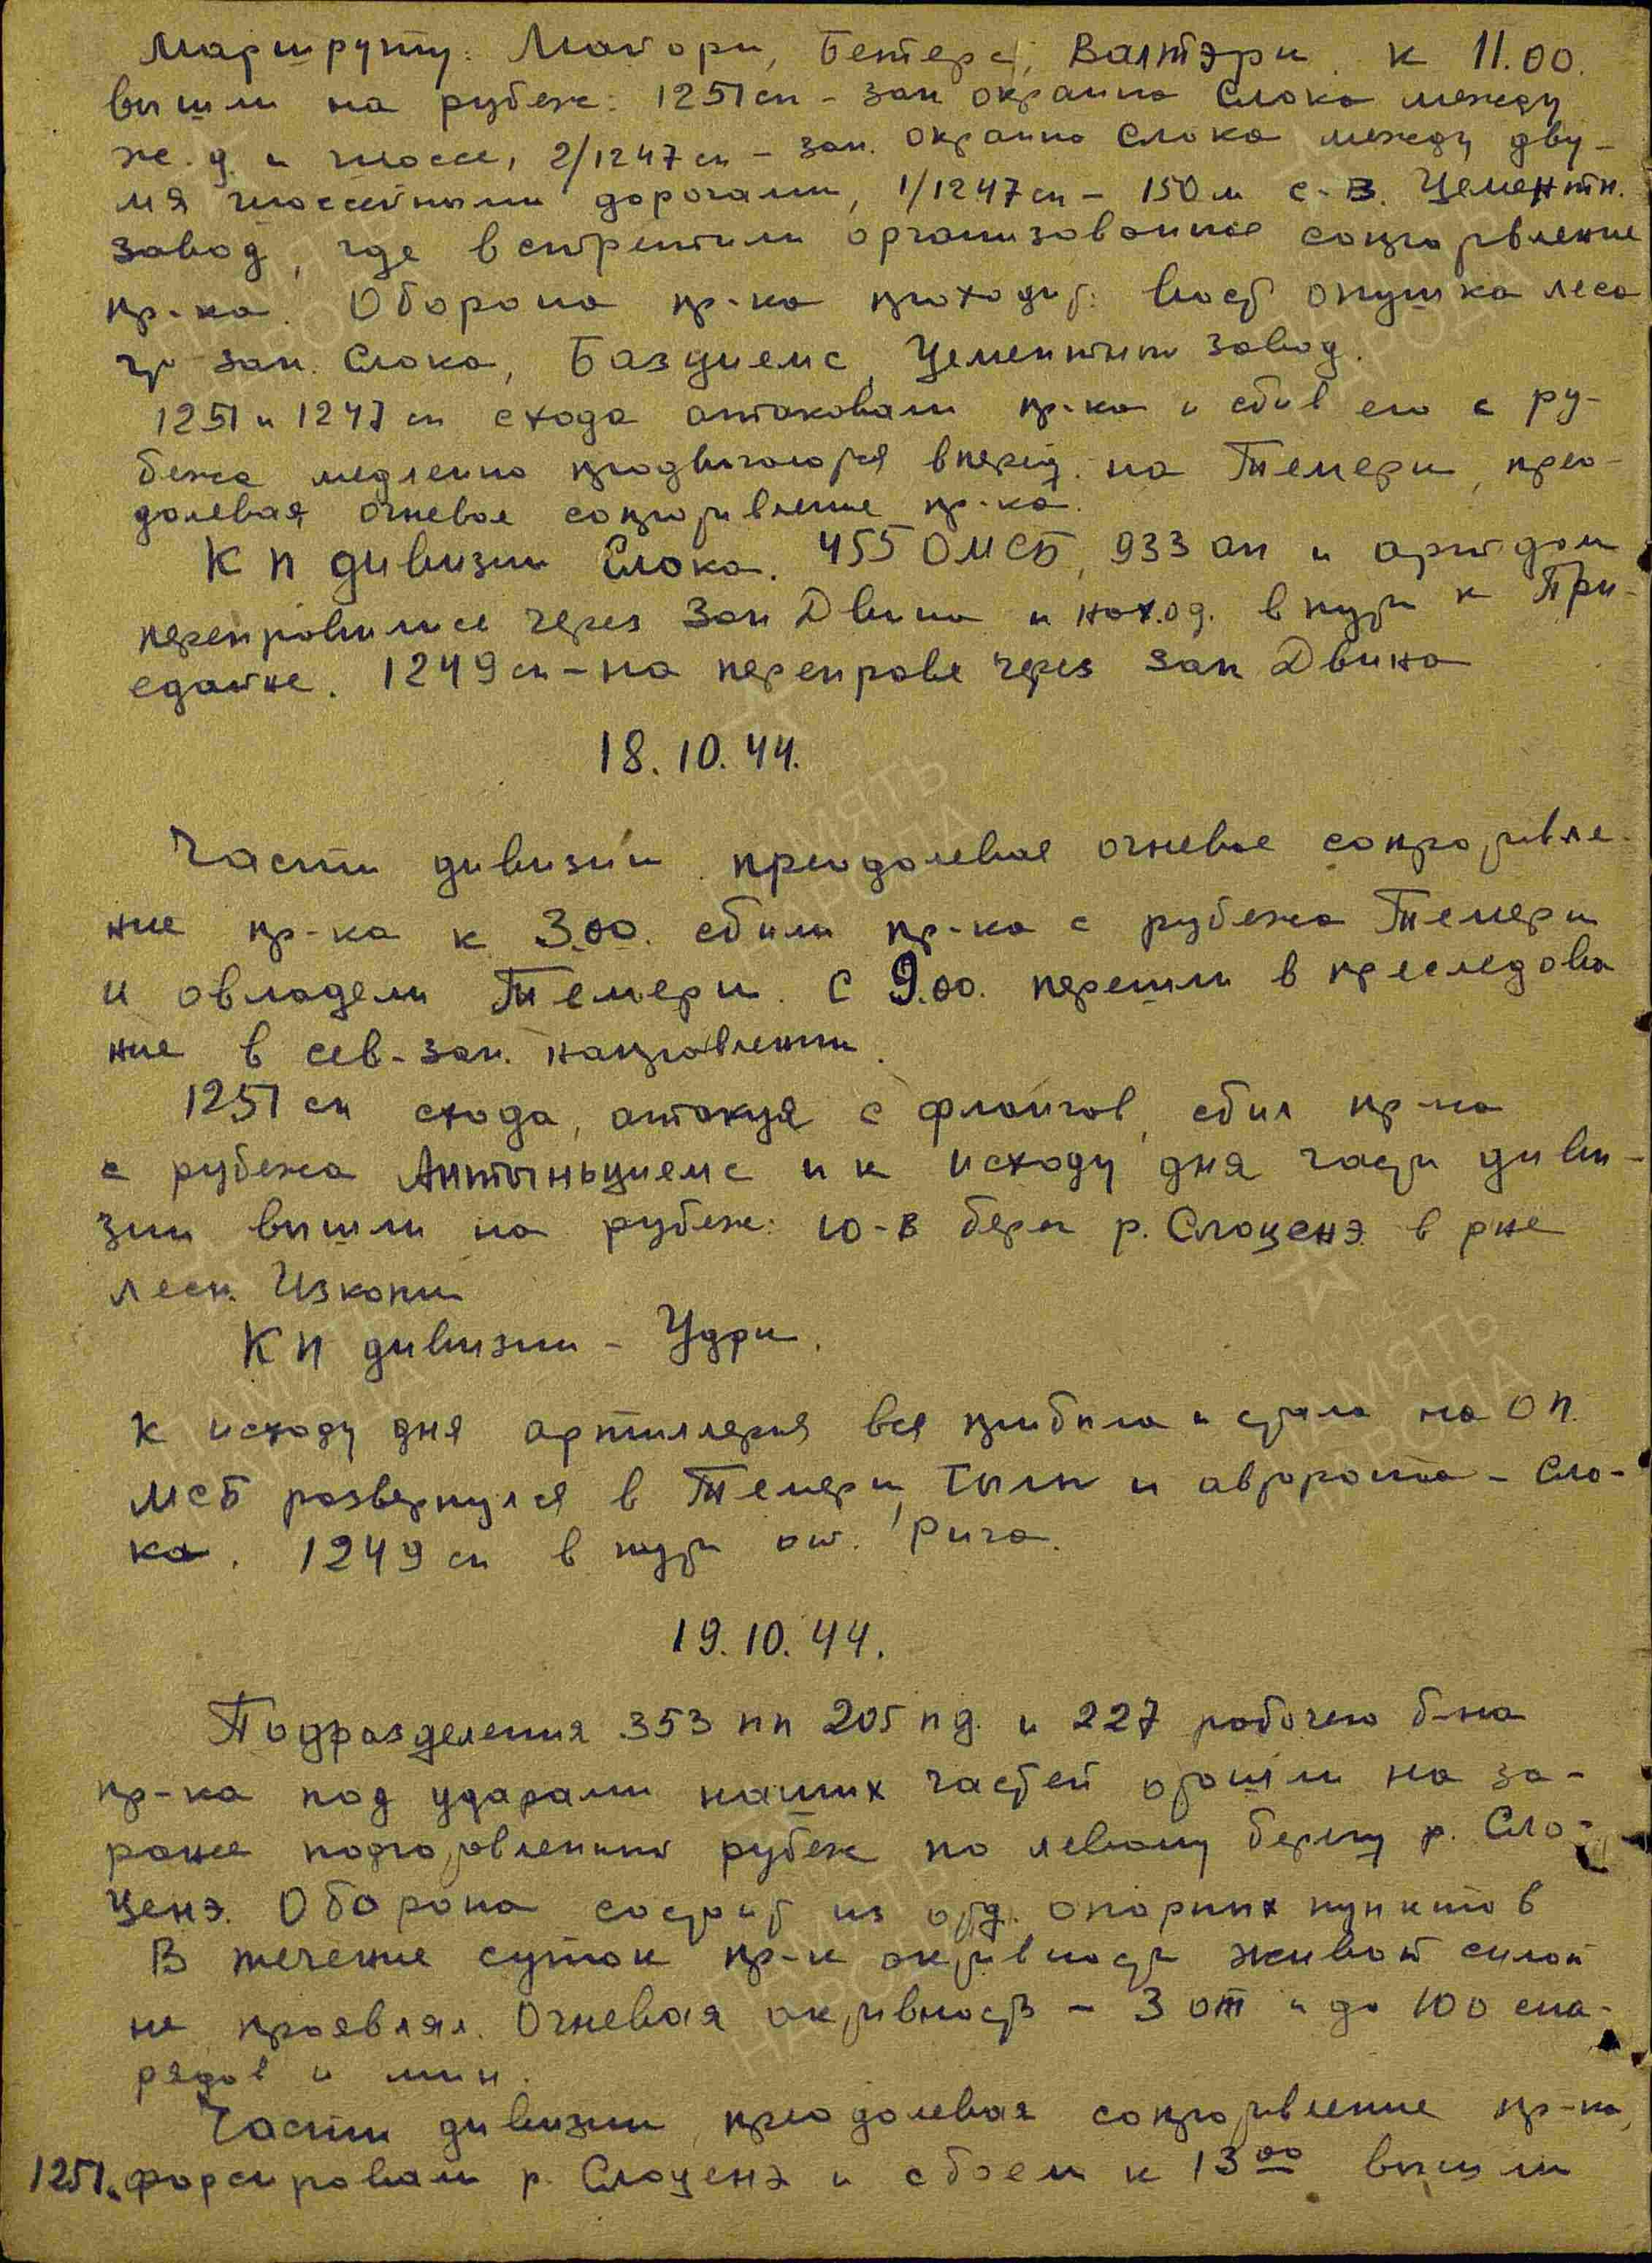 Маршруту: Майори, Бетерс, Валтэри. к 11.00.
вышли на рубеж: 1251 сп - зап окраина Слока между
ж.д. и шоссе, 2/1247 сп - зап. окраина Слока между дву-
мя шоссейными дорогами, 1/1247 сп - 150 м с-в. Цементн.
завод, где встретили организованное сопротивление
пр-ка. Оборона пр-ка проходит: вост опушка леса
что зап. Слока, Базциемс, Цементный завод.
1251 и 1247 сп схода атаковали пр-ка и сбив его с ру-
бежа медленно продвигаются вперед. на Темери, прео-
долевая, огневое сопротивление пр-ка.
КП дивизии Слока. 455 ОМСБ, 933 ап и
переправились через Зап Двина и наход. в пути к При-
едайне. 1249 сп - на переправе через Зап Двина
18.10.44.
Части дивизии преодолевая огневое сопротивле
ние пр-ка к 3.00. сбили пр-ка с рубежа Темери
и овладели Темери. С 9.00. перешли в преследова
ние в сев-зап. направлении.
1251 сп схода, атакуя с флангов, сбил пр-ка
с рубежа Антыньциемс и к исходу дня части диви-
зии вышли на рубеж: ю-в берег р. Слоценэ в р-не
лесн. Изкопи
КП дивизии - Удри.
К исходу дня артиллерия вся прибыла и стала на ОП.
МСБ развернулся в Темери, тылы и авторота - Сло-
ка. 1249 сп в пути от Рига.
19.10.44.
Подразделения 353 пп 205 пд. и 227 рабочего б-на
пр-ка под ударами наших частей отошли на за-
ранее подготовленный рубеж по левому берегу р. Сло-
ценэ. Оборона состоит из отд. опорных пунктов
В течение суток пр-к активность живой силой
не проявлял. Огневая активность - 3 от и до 100 сна-
рядов и мин.
Части дивизии, преодолевая сопротивление пр-ка,
1251. форсировали р. Слоценэ и с боем к 13 00 вышли